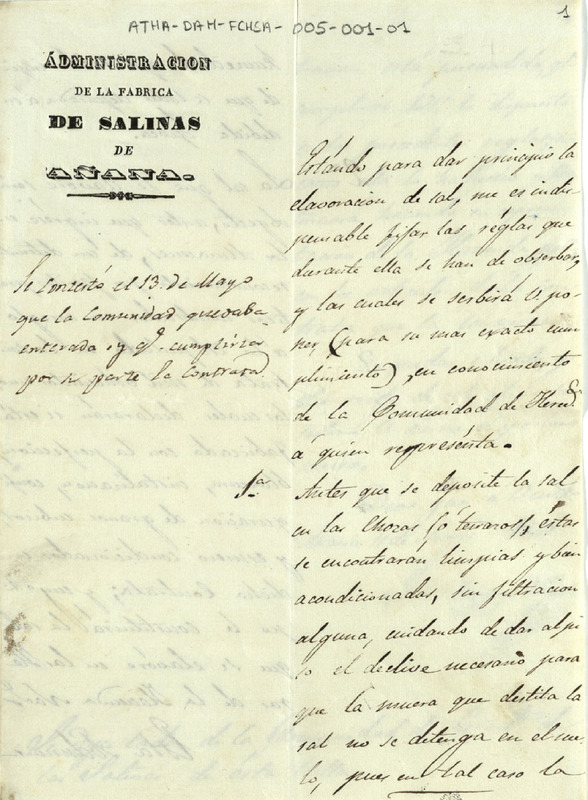 ATHA-DAH-FCHSA-005-001-01
1
ADMINISTRACION
DE LA FABRICA
DE SALINAS
DE
AÑANA.
Se Contestó el 13. de Mayo
que la Comunidad quedaba
enterada. y q.e cumpliria
por su parte la Contrata
Estando para dar principio la
elavoracion de sal, me es indis
pensable fijar las réglas que
durante ella se han de obserbar,
y las cuales se serbirá V. po-
ner, (para su mas exacto cum
plimiento), en conocimiento
de la Comunidad de Hered.s
á quien representa.
1.a
Antes que se deposite la sal
en las Chozas (ó terrazos), estas
se encontrarán limpias y bien
acondicionadas, sin filtracion
alguna, cuidando de dar al pi
so el declive necesario para
que la muera que destila la
sal no se ditenga en el sue
lo, pues en tal caso la